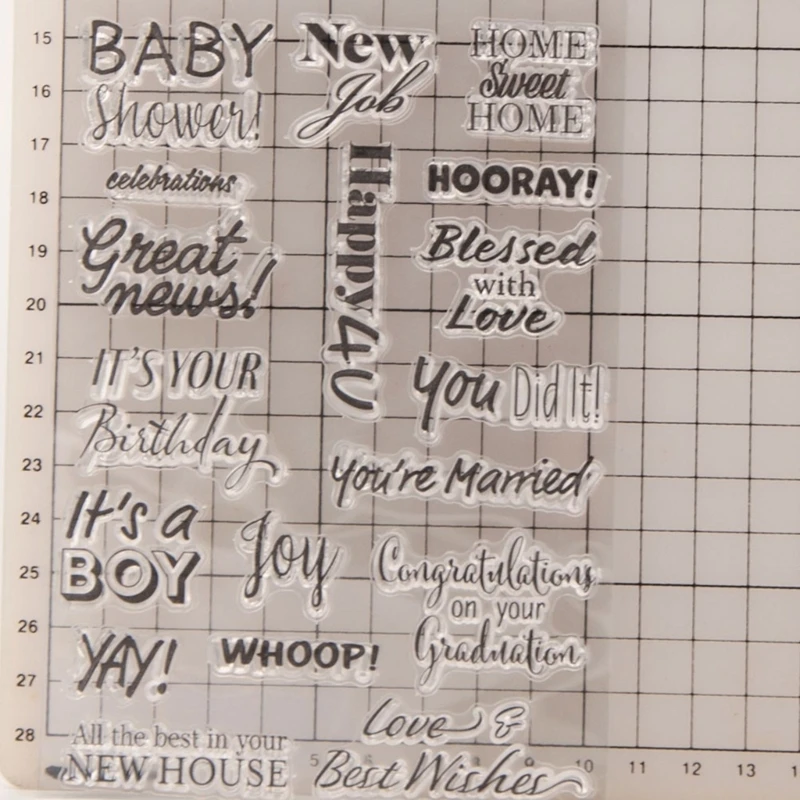 15
BABY
Shower!
New
Job
HOME
Sweet
HOME
16
17
celebrations
Happy 4 U
HOORAY!
18
Great
news!
Blessed
with
Love
19
20
21
IT'S YOUR
Birthday
You Did It!
22
You're Married
23
It's a
BOY
Joy
Congratulations
on your
Graduation
24
25
26
YAY!
WHOOP!
27
Love &
Best Wishes
28
All the best in your
NEW HOUSE
5 6 8 9 10 11 12 13